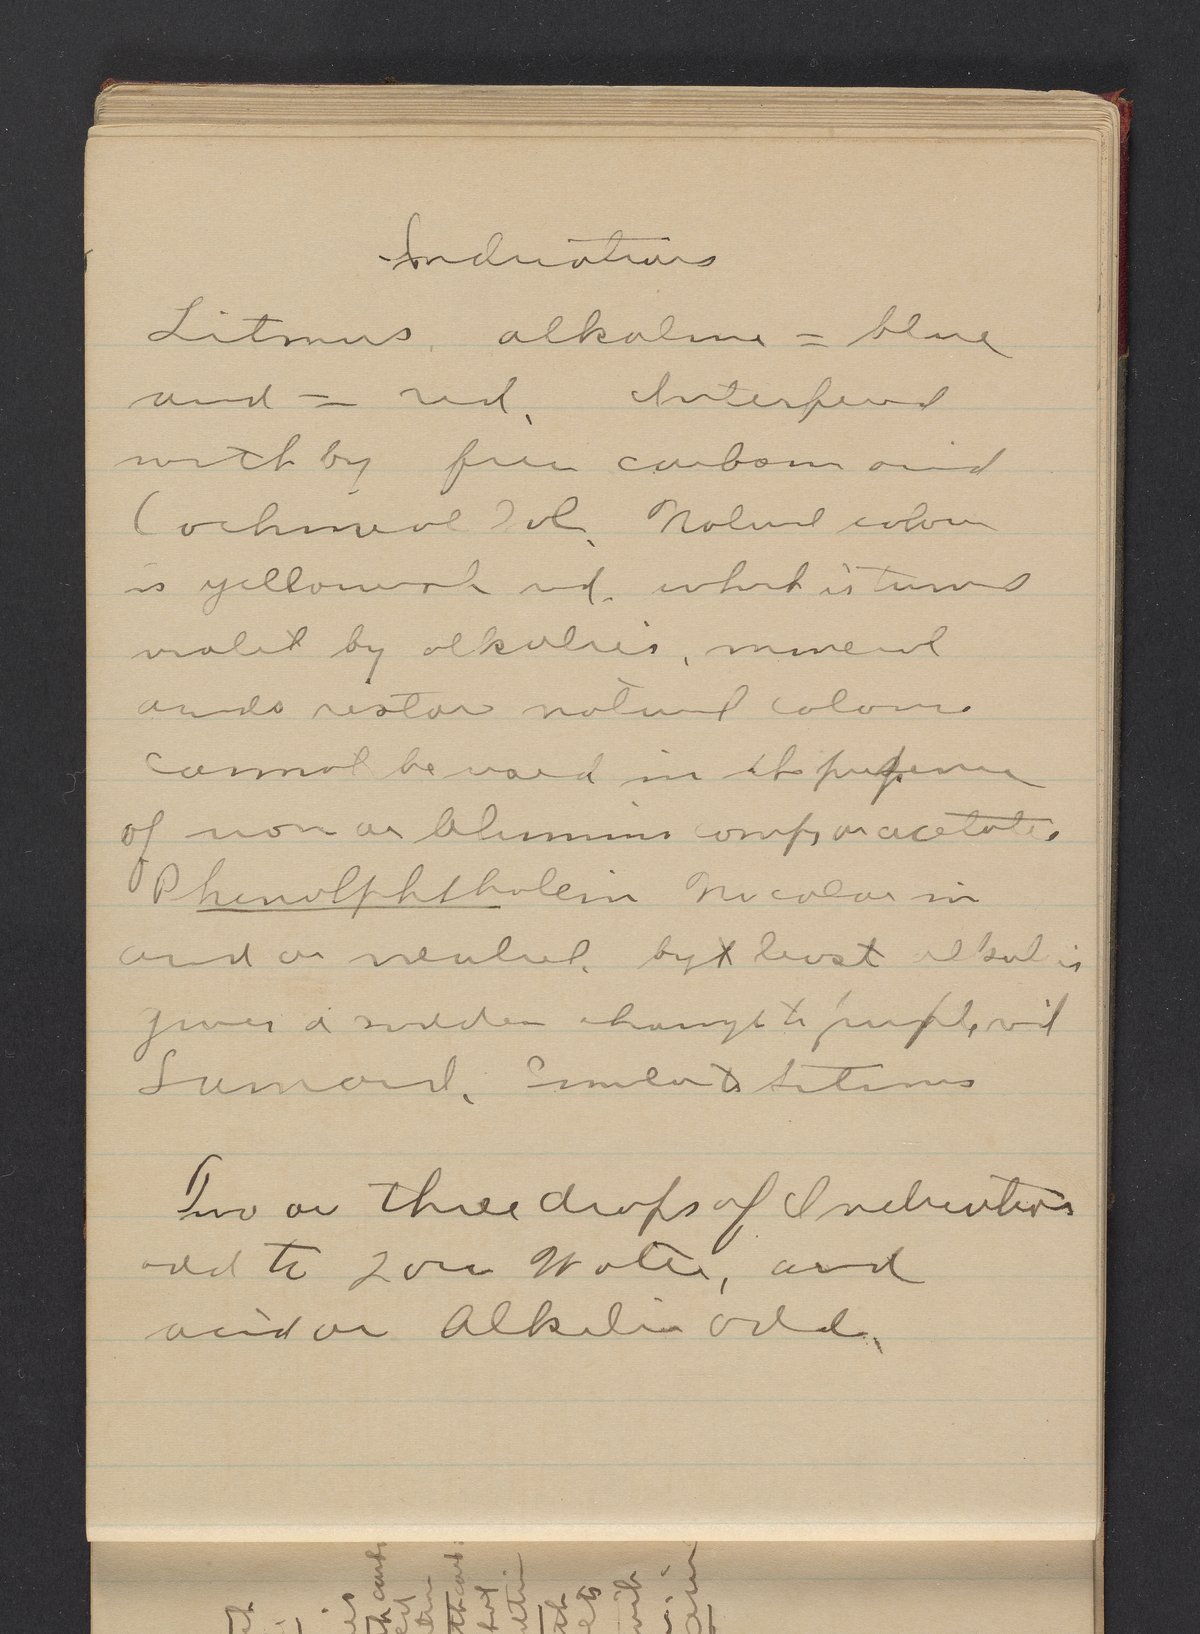 Indicators
Litmus. alkaline = blue
acid = red. Interfered
with by free carbonic acid
Cochineal Sol. Natural colour
is yellowish red. which is turned
violet by alkalies, mineral
acids restore natural colour
cannot be used in the presence
of iron or Alumina comps or acetates
Phenolphthalein No color in
acid or neutral. by least alkali
gives a sudden change to purple red
Similar to Litmus
Two or three drops of Indicators
add to Water, and
acid or Alkali add.